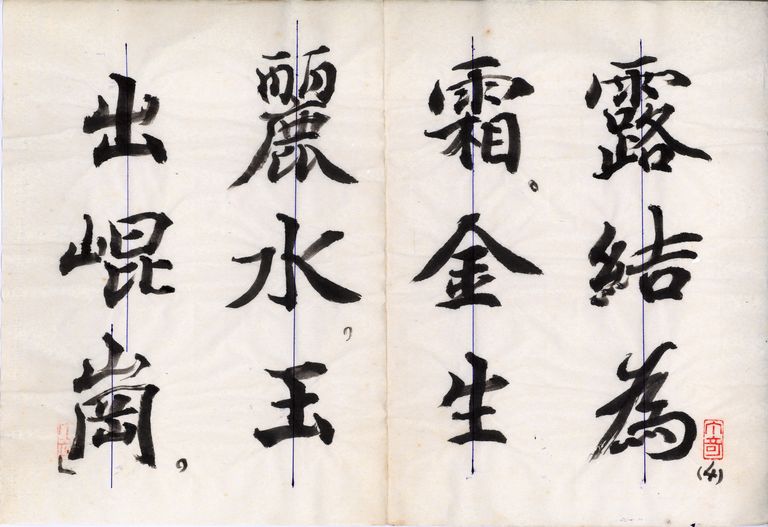 露結為
霜。金生
麗水，玉
出崐崗，
(4)